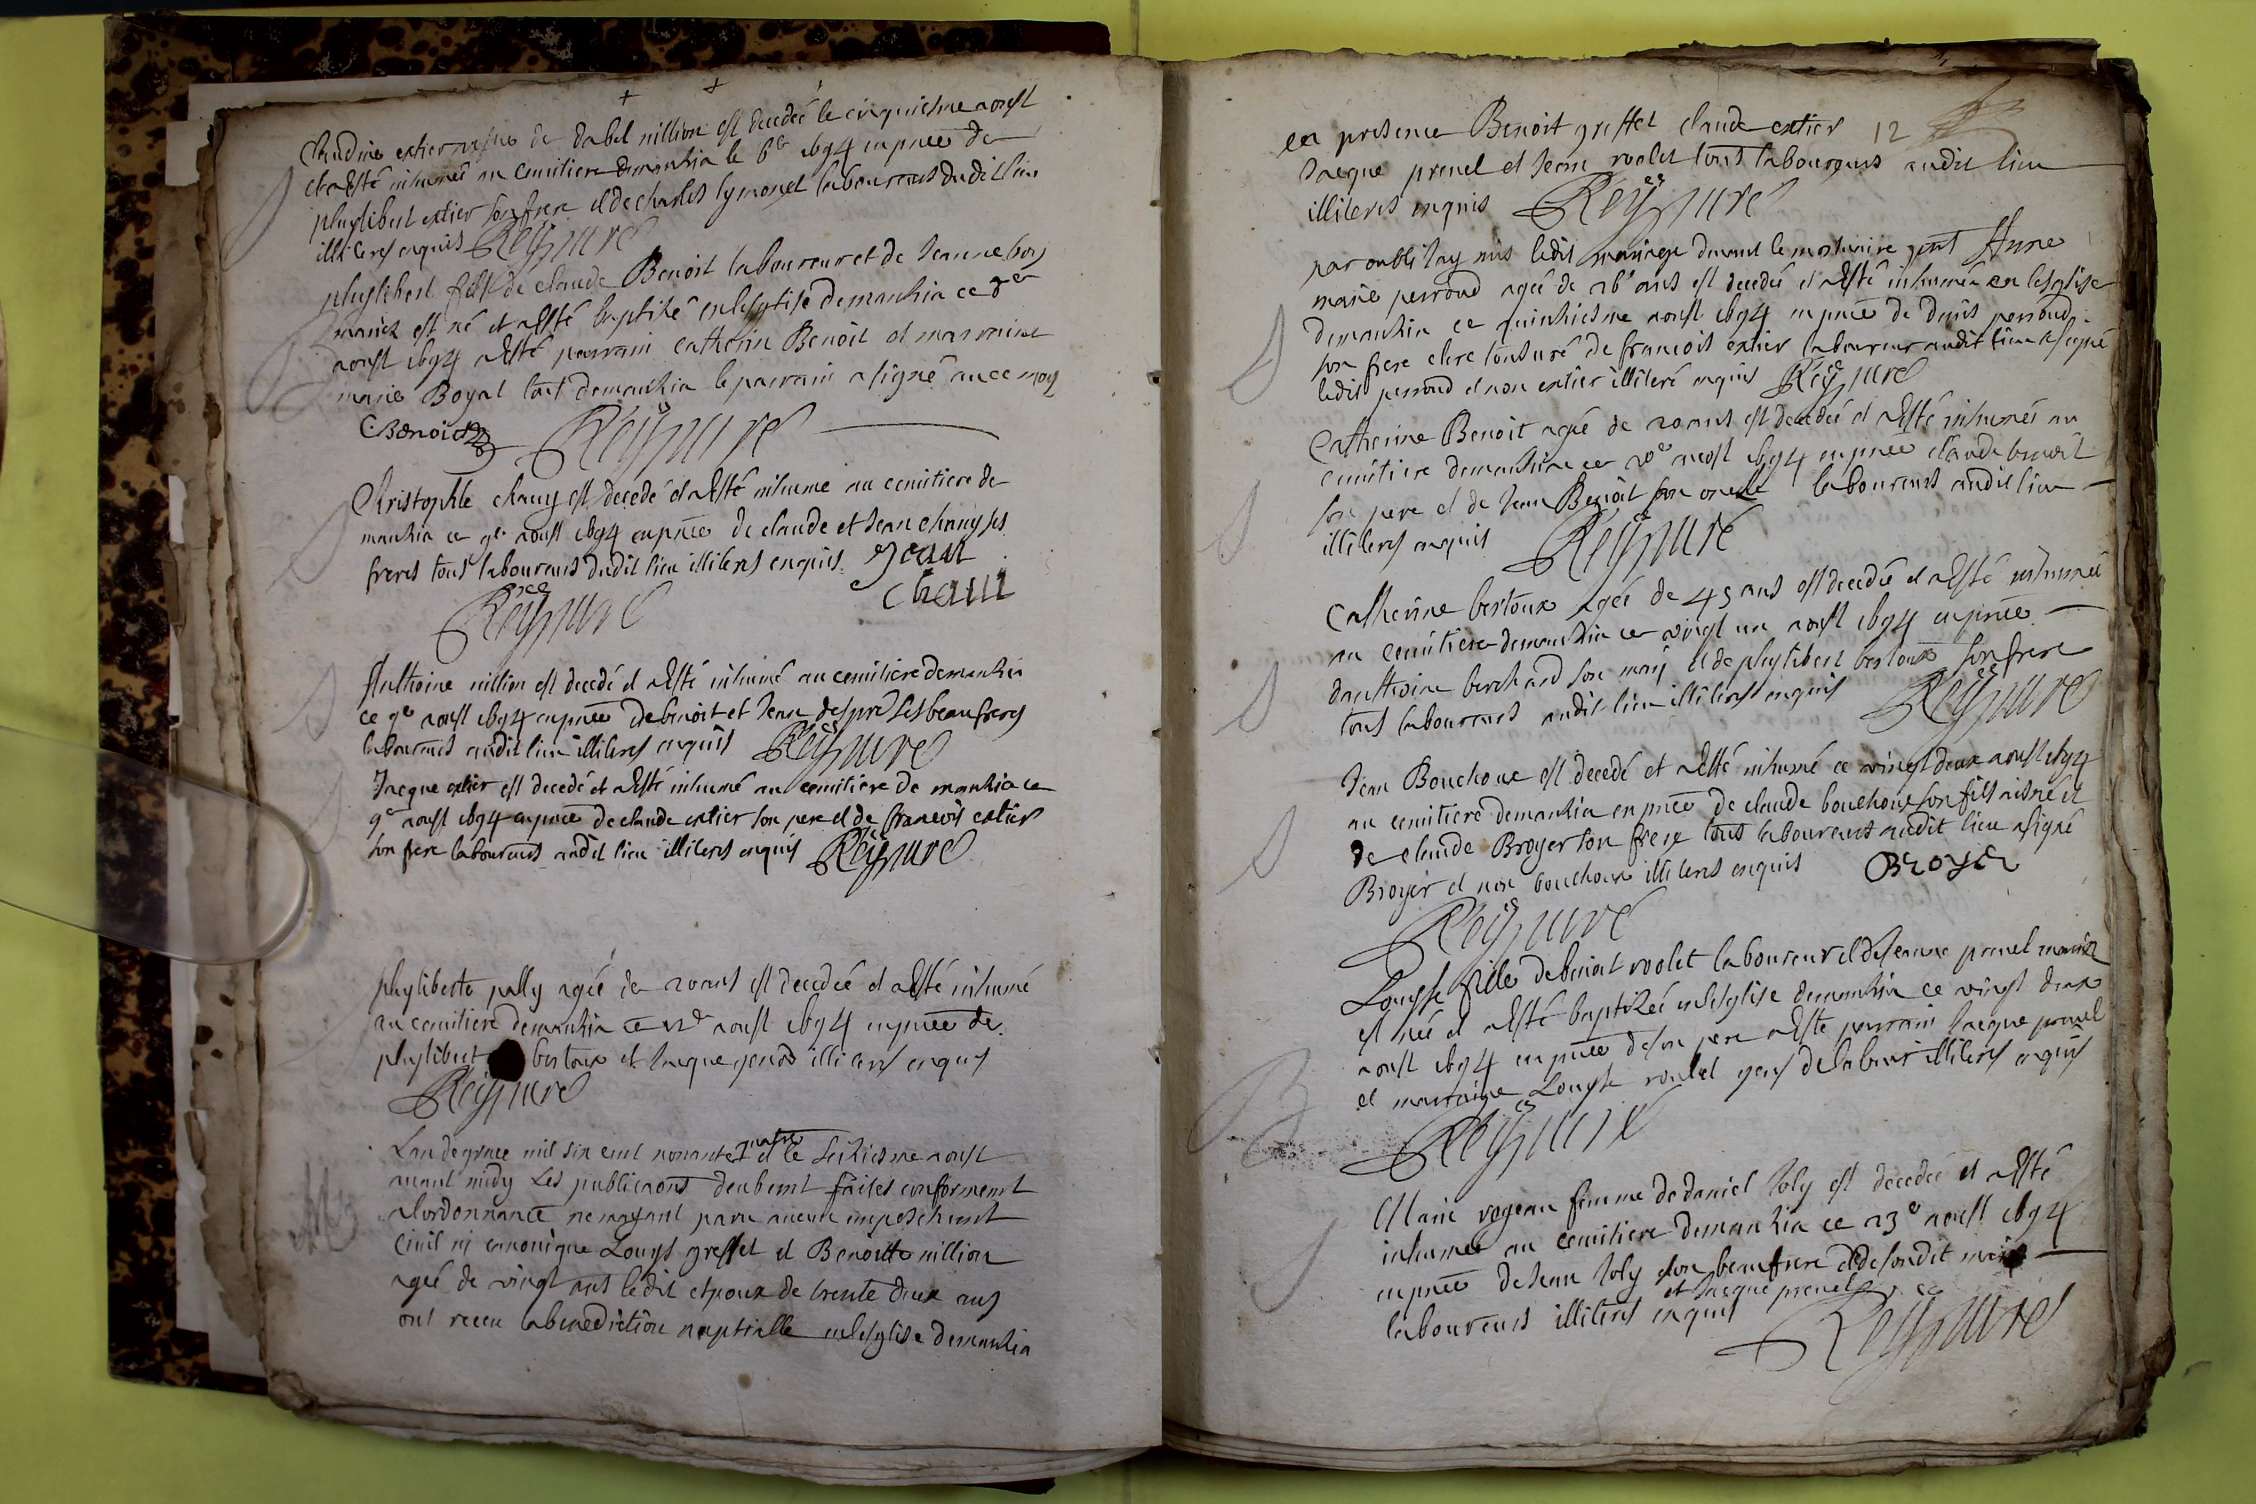 Claudine extier vefue de dabel nillion est decedeé le cinquiesme aoust
et a Esté inhumeé au cemitiere demanhia le 6e 1694 en pnce de
phylibert extier son frere et de charles lymonet laboureurs dudit lieu
illiteres enquis Reyssure
phylibert fils de claude Benoit laboureur et de Jeanne boy
mariez est né et a Esté baptisé en lesglise demanhia ce 8er
aoust 1694 a Esté parrain catherin Benoit et marraine
marie Boyat tout demanhia le parrain a signé auec moy
CBenoit Reyssure
Christophle chauy est decedé et a Esté inhume au cemitiere de
manhia ce 9e aoust 1694 en pnce de claude et Jean chauy ses
freres tous laboureurs dudit lieu illiteres enquis. Jean
chaui
Reyssure
Anthoine nillion est decedé et a Esté inhumé au cemitiere demanhia
ce 9e aoust 1694 en pnce debenoit et Jean despre ses beaufreres
laboureurs audit lieu illiteres enquis Reyssure
Jacque extier est decedé et a Esté inhumé au cemitiere de manhia ce
9e aoust 1694 en pnce de claude extier son pere et de francois extier
son frere laboureurs audit lieu illiteres enquis Reyssure
phyliberte pally ageé de 20 ans est decedeé et a Esté inhumé
au cemitiere demanhia ce 12e aoust 1694 en pnce de
phylibert bertoux et Jacque illiteres enquis
Reyssure
Lan de grace mil six cent nonante quatre et le seiziesme aoust
auant midy Les publicaons deubemt faites conformemt
a lordonnance ne mayant paru aucun empeschemt
Ciuil ni canonique Louys greffet et Benoitte nillion
ageé de vingt ans ledit espoux de trente deux ans
ont receu la benediction nuptialle en lesglise demanhia
en presence Benoit greffet claude extier 12
Jacque prenel et Jean rvolet tous laboureurs audit lieu
illiteres enquis Reyssure
par oubli Jay mis ledit mariage deuant le mortuaire Anne
marie perroud ageé de 26 ans est decedeé et a Esté inhumeé en lesglise
demanhia ce quinziesme aoust 1694 en pnce de denis perroud
son frere clerc tonsuré de francois extier laboureur audit lieu a signé
ledit perroud et non extier illiteré enquis Reyssure
Catherine Benoit ageé de 20 ans est decedeé et a Esté inhumeé au
cemitiere demanhia ce 20e aoust 1694 en pnce claude benoit
son pere et de Jean Benoit son oncle laboureurs audit lieu
illiteres enquis Reyssure
Catherine bertoux ageé de 45 ans est decedeé et a Esté inhumeé
au cemitiere demanhia ce vingt un aoust 1694 en pnce
danthoine berchard son mary et de phylibert bertoux son frere
tous laboureurs audit lieu illiteres enquis Reyssure
Jean Bouchoux est decedé et a Esté inhumé ce vingt deux aoust 1694
au cemitiere demanhia en pnce de claude bouchoux son fils aisné et
de claude Broyer son frere tous laboureurs audit lieu a signé
Broyer et non bouchoux illiteres enquis Broyer
Reyssure
Louyse fille debenoit rvolet laboureur et de Jeanne prenel mariez
est neé et a Esté baptizeé en lesglise demanhia ce vingt deux
aoust 1694 en pnce de son pere a Esté parrain Jacque prenel
et marraine Louyse gens de labeur illiteres enquis
Reyssure
Marie vogeau femme de daniel Joly est decedeé et a Esté
inhumeé au cemitiere demanhia ce 23e aoust 1694
en pnce de Jean Joly son beaufrere et de sondit mary
et Jacque prenel
laboureurs illiteres enquis Reyssure